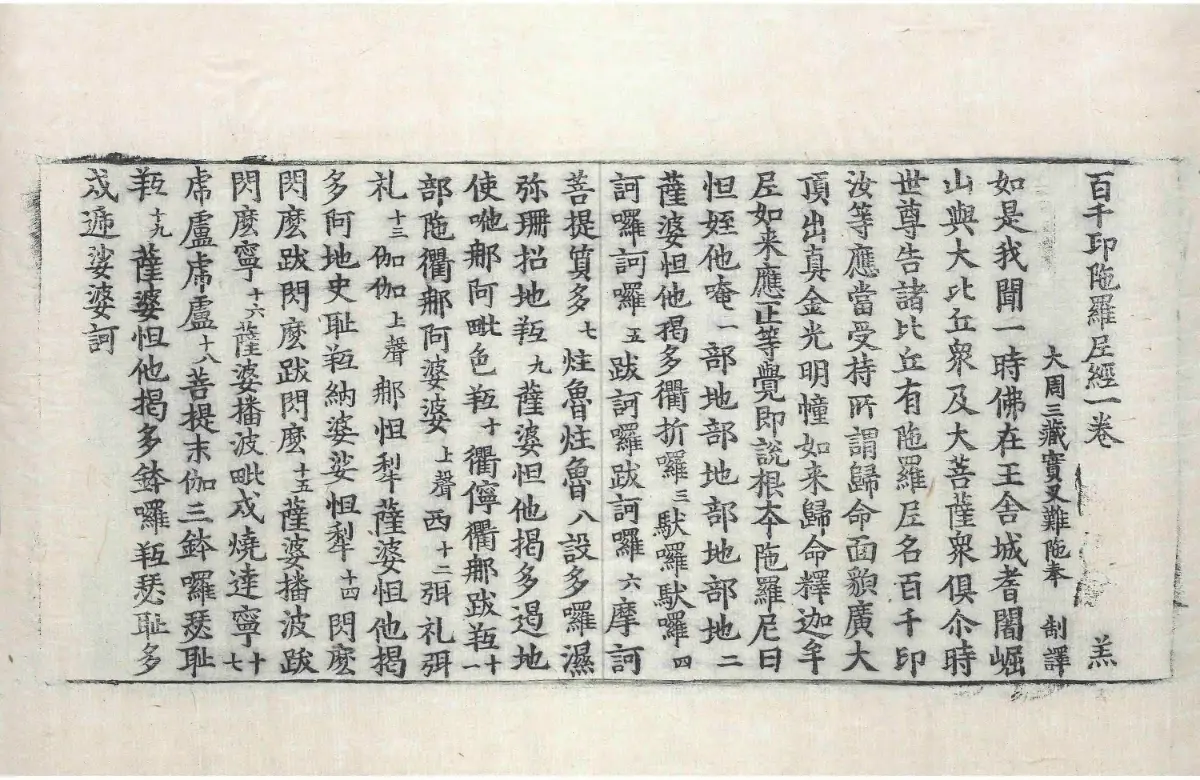 百千印陁羅𡰱經一卷 羔
大周三藏實叉難陁奉 制譯
如是我聞一時佛在王舍城耆闍崛
山與大比丘衆及大菩薩衆俱尒時
世尊告諸比丘有陁羅𡰱名百千印
汝等應當受持所謂歸命面貌廣大
頂出真金光明幢如来歸命釋迦牟
𡰱如来應正等覺即說根夲陁羅尼曰
怛姪他唵一部地部地部地部地二
薩婆怛他揭多衢折囉三馱囉馱囉四
訶囉訶囉五跋訶囉跋訶囉六摩訶
菩提質多七炷魯炷魯八設多囉濕
弥珊招地羝九薩婆怛他揭多遏地
使咃郍阿毗色羝十衢儜衢郍跋羝十一
部陁衢郍阿婆婆上聲西十二弭礼弭
礼十三伽伽上聲郍怛犁薩婆怛他揭
多阿地史耻羝納婆娑怛犁十四閃麽
閃麽跋閃麽跋閃麽十五薩婆播波跋
閃麽寧十六薩婆播波毗戍燒達寧十七
虎盧虎盧十八菩提末伽三鉢囉瑟耻
羝十九薩婆怛他揭多鉢囉羝瑟耻多
戍遞娑婆訶